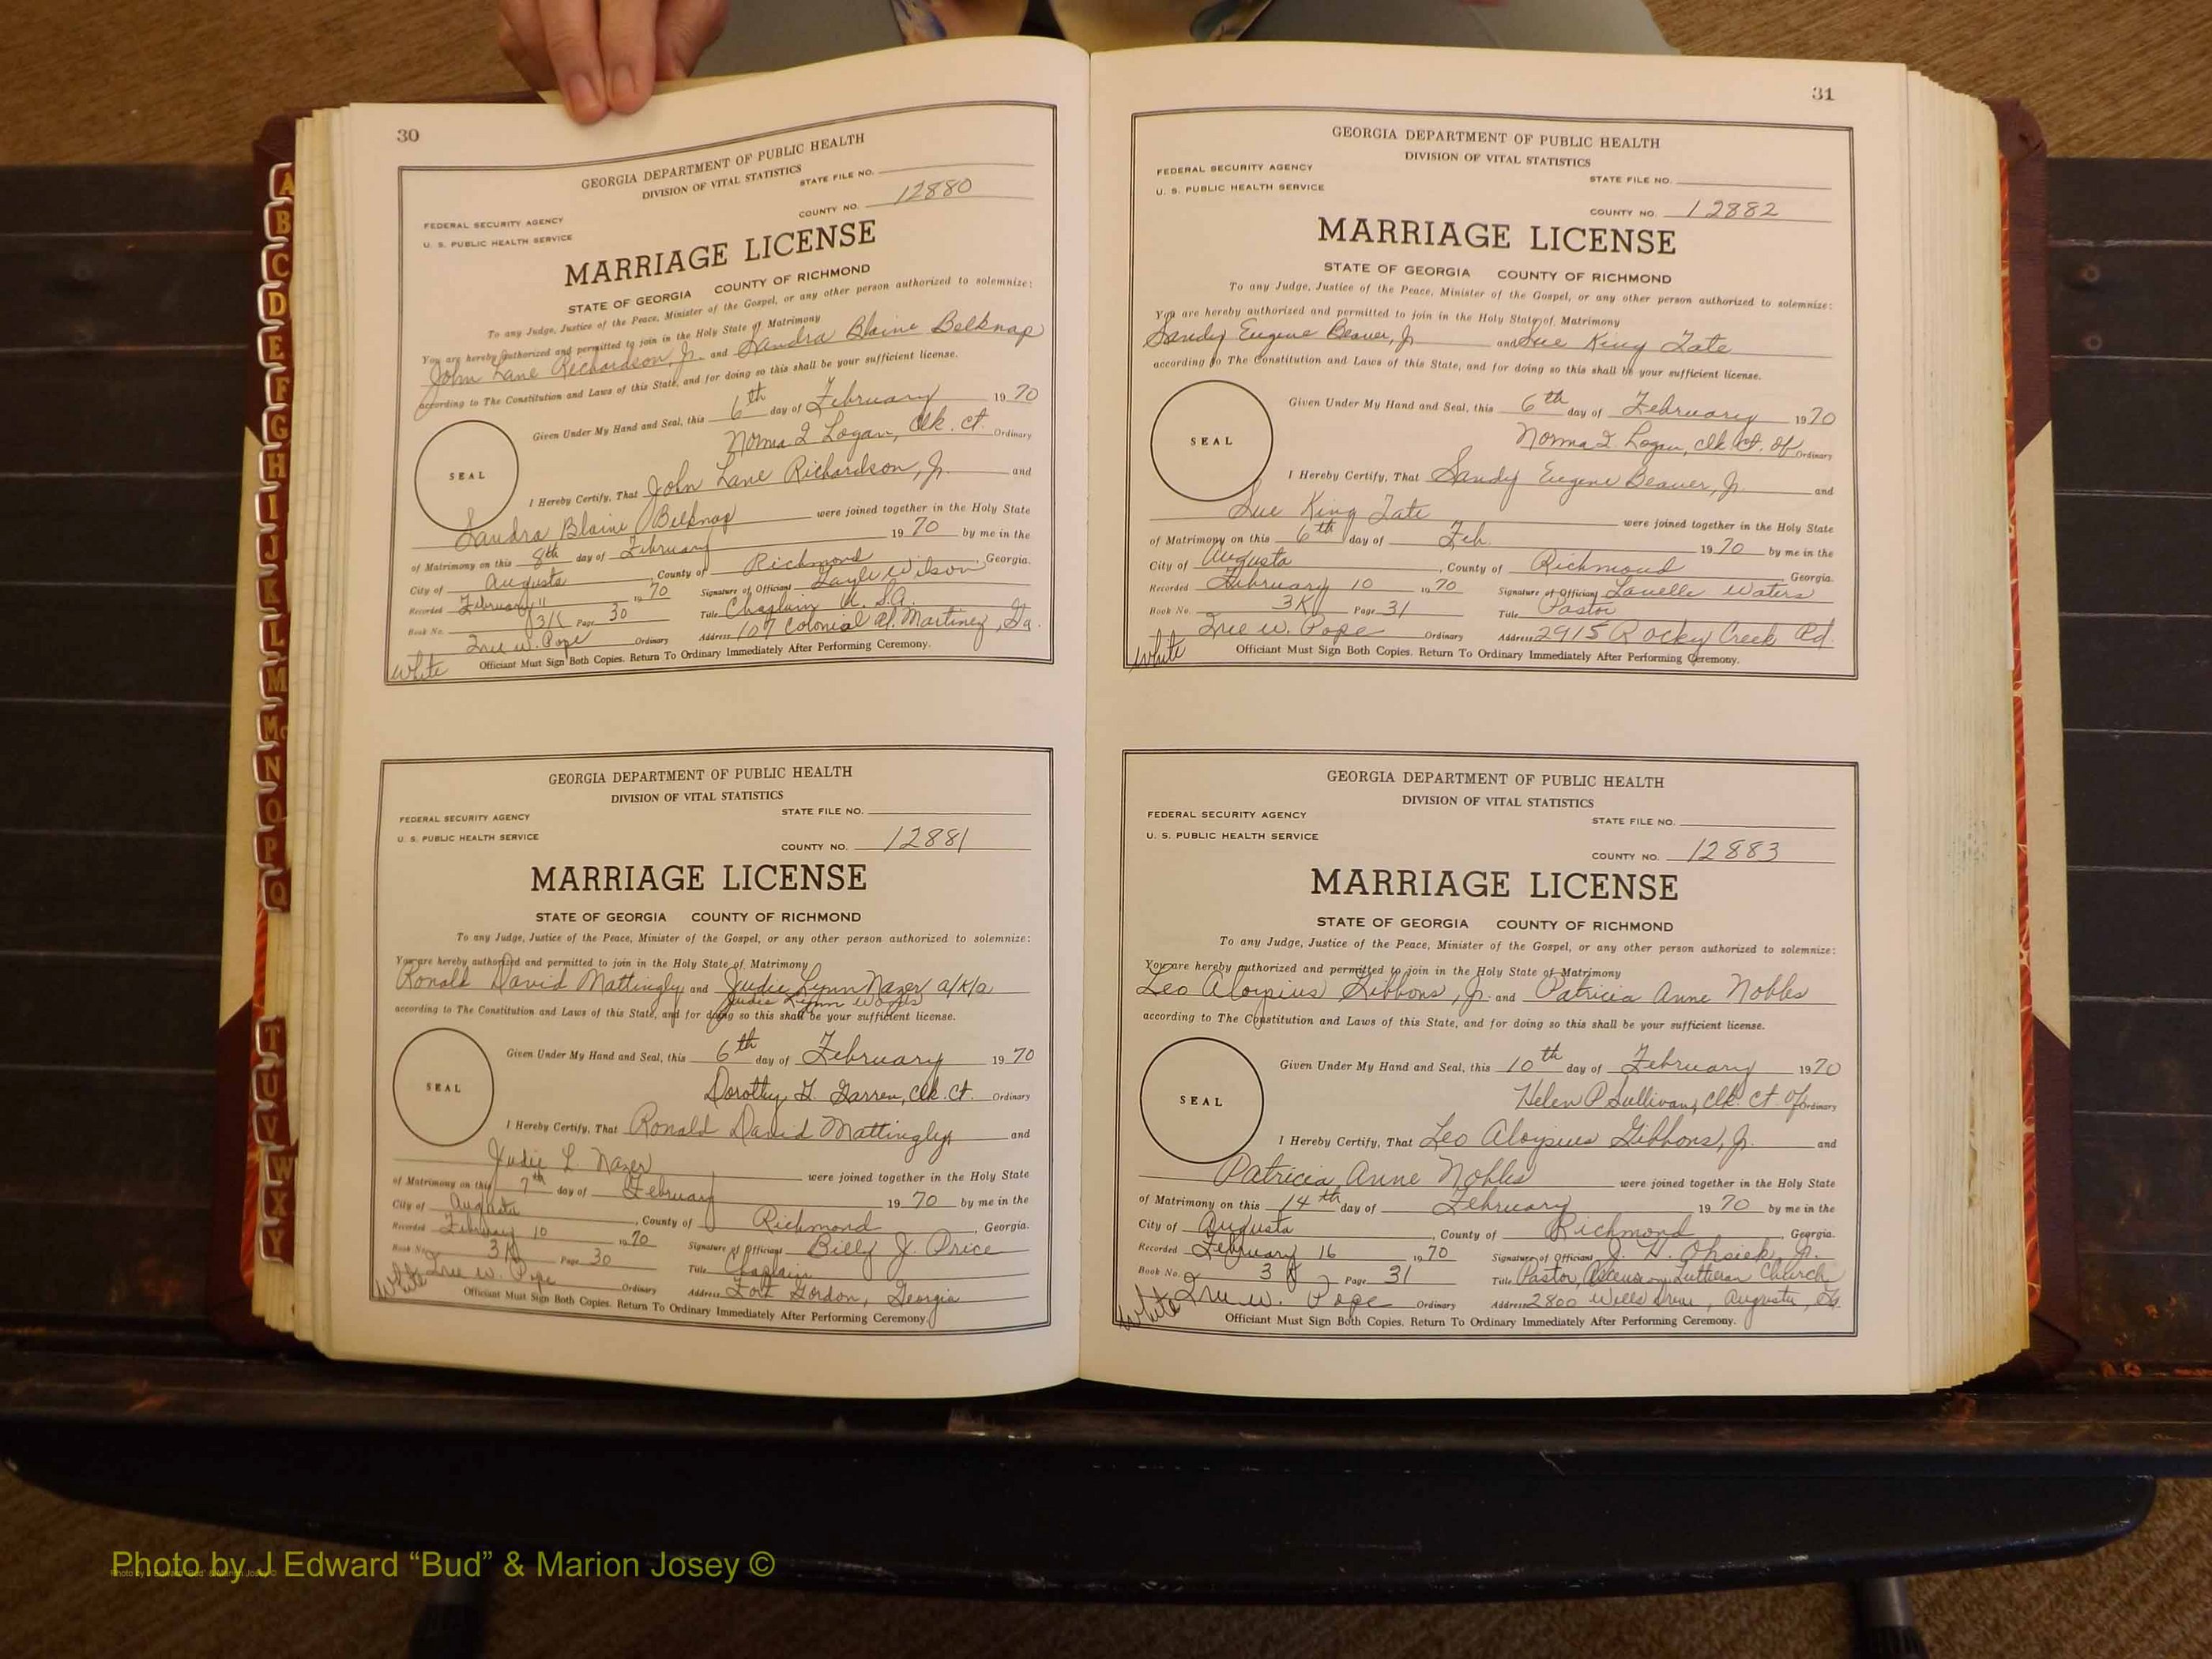 30
GEORGIA DEPARTMENT OF PUBLIC HEALTH
DIVISION OF VITAL STATISTICS
STATE FILE NO.
FEDERAL SECURITY AGENCY
U. S. PUBLIC HEALTH SERVICE
COUNTY NO. 12880
MARRIAGE LICENSE
STATE OF GEORGIA COUNTY OF RICHMOND
To any Judge, Justice of the Peace, Minister of the Gospel, or any other person authorized to solemnize:
You are hereby authorized and permitted to join in the Holy State of Matrimony
John Lane Richardson, Jr. and Sandra Blaine Belknap
according to The Constitution and Laws of this State, and for doing so this shall be your sufficient license.
Given Under My Hand and Seal, this 6th day of February 1970
Norma I. Logan, Clk. Ct. Ordinary
SEAL
I Hereby Certify, That John Lane Richardson, Jr. and
Sandra Blaine Belknap were joined together in the Holy State
of Matrimony on this 8th day of February 1970 by me in the
City of Augusta, County of Richmond, Georgia.
Recorded February 11 1970 Signature of Official Gayle Wilson
Book No. 3K Page 30 Title Chaplain U.S.A.
True W. Pope Ordinary Address 107 Colonial Ct. Martinez, Ga.
White Officiant Must Sign Both Copies. Return To Ordinary Immediately After Performing Ceremony.
GEORGIA DEPARTMENT OF PUBLIC HEALTH
DIVISION OF VITAL STATISTICS
STATE FILE NO.
FEDERAL SECURITY AGENCY
U. S. PUBLIC HEALTH SERVICE
COUNTY NO. 12881
MARRIAGE LICENSE
STATE OF GEORGIA COUNTY OF RICHMOND
To any Judge, Justice of the Peace, Minister of the Gospel, or any other person authorized to solemnize:
You are hereby authorized and permitted to join in the Holy State of Matrimony
Ronald David Mattingly and Judie Lynn Nazer a/k/a
Judie Lynn
according to The Constitution and Laws of this State, and for doing so this shall be your sufficient license.
Given Under My Hand and Seal, this 6th day of February 1970
Dorothy G. Garren, Clk. Ct. Ordinary
SEAL
I Hereby Certify, That Ronald David Mattingly and
Judie L. Nazer were joined together in the Holy State
of Matrimony on this 7th day of February 1970 by me in the
City of Augusta, County of Richmond, Georgia.
Recorded February 10 1970 Signature of Official Billy J. Price
Book No. 3K Page 30 Title Chaplain
True W. Pope Ordinary Address Fort Gordon, Georgia
White Officiant Must Sign Both Copies. Return To Ordinary Immediately After Performing Ceremony.
31
GEORGIA DEPARTMENT OF PUBLIC HEALTH
DIVISION OF VITAL STATISTICS
FEDERAL SECURITY AGENCY
STATE FILE NO.
U. S. PUBLIC HEALTH SERVICE
COUNTY NO. 12882
MARRIAGE LICENSE
STATE OF GEORGIA COUNTY OF RICHMOND
To any Judge, Justice of the Peace, Minister of the Gospel, or any other person authorized to solemnize:
You are hereby authorized and permitted to join in the Holy State of Matrimony
Sandy Eugene Beaver, Jr. and Sue King Tate
according to The Constitution and Laws of this State, and for doing so this shall be your sufficient license.
Given Under My Hand and Seal, this 6th day of February 1970
Norma I. Logan, Clk. Ct. Of Ordinary
SEAL
I Hereby Certify, That Sandy Eugene Beaver, Jr. and
Sue King Tate were joined together in the Holy State
of Matrimony on this 6th day of Feb. 1970 by me in the
City of Augusta, County of Richmond, Georgia.
Recorded February 10 1970 Signature of Official Lavelle Waters
Book No. 3K Page 31 Title Pastor
True W. Pope Ordinary Address 2915 Rocky Creek Rd.
White Officiant Must Sign Both Copies. Return To Ordinary Immediately After Performing Ceremony.
GEORGIA DEPARTMENT OF PUBLIC HEALTH
DIVISION OF VITAL STATISTICS
FEDERAL SECURITY AGENCY
STATE FILE NO.
U. S. PUBLIC HEALTH SERVICE
COUNTY NO. 12883
MARRIAGE LICENSE
STATE OF GEORGIA COUNTY OF RICHMOND
To any Judge, Justice of the Peace, Minister of the Gospel, or any other person authorized to solemnize:
You are hereby authorized and permitted to join in the Holy State of Matrimony
Leo Aloysius Gibbons, Jr. and Patricia Anne Nobles
according to The Constitution and Laws of this State, and for doing so this shall be your sufficient license.
Given Under My Hand and Seal, this 10th day of February 1970
Helen P Sullivan, Clk. Ct. Of Ordinary
SEAL
I Hereby Certify, That Leo Aloysius Gibbons, Jr. and
Patricia Anne Nobles were joined together in the Holy State
of Matrimony on this 14th day of February 1970 by me in the
City of Augusta, County of Richmond, Georgia.
Recorded February 16 1970 Signature of Official J. H. Ohsiek, Jr.
Book No. 3K Page 31 Title Pastor, Ascension Lutheran Church
True W. Pope Ordinary Address 2800 Wells Drive, Augusta, Ga.
White Officiant Must Sign Both Copies. Return To Ordinary Immediately After Performing Ceremony.
A
B
C
D
E
F
G
H
I
J
K
L
M
Mc
N
O
P
Q
T
U
V
W
X
Y
Photo by J Edward “Bud” & Marion Josey ©
Photo by J Edward "Bud" & Marion Josey ©